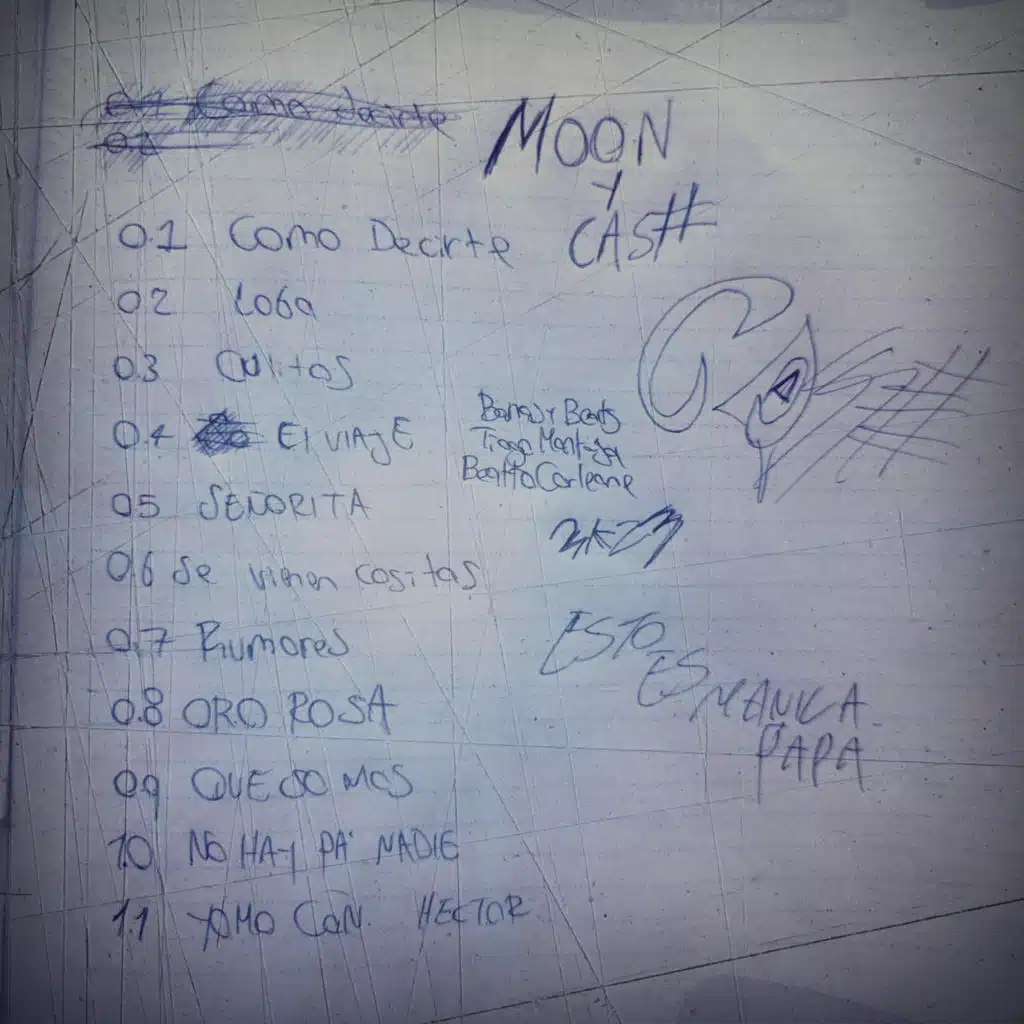 MOON
Y
CAS#
0.1 Como Decirte
02 Loba
03 Culitos
04 El VIAJE
05 SEÑORITA
0.6 Se vienen cositas
0.7 Rumores
0.8 ORO ROSA
09 QUE SOMOS
10 NO HAY PA' NADIE
11 COMO CON HECTOR
Beats
Beatto Corleone
2K23
ESTO
ES MANIKA
PAPA